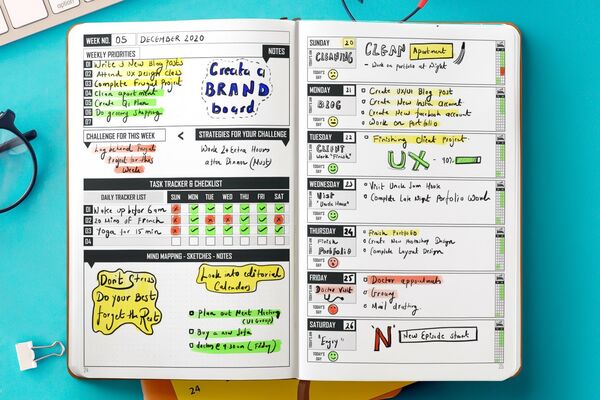 option
WEEK NO. 05 DECEMBER 2020
WEEKLY PRIORITIES
NOTES
01 Write 3 New Blog Posts
02 Attend UX Design Class
03 Complete Frugal Project
04 Clean apartment
05 Create Q1 Plan
06 Do grocery shopping
07
Create a
BRAND
board.
CHALLENGE FOR THIS WEEK
<
STRATEGIES FOR YOUR CHALLENGE
Lag behind Project
Project for this
Week
Work 2 extra Hours
after Dinner (Must)
TASK TRACKER & CHECKLIST
DAILY TRACKER LIST SUN MON TUE WED THU FRI SAT
01 Wake up before 6 am
02 20 Mins of French
03 Yoga for 15 min
04
MIND MAPPING - SKETCHES - NOTES
Don't Stress
Do your Best
Forget the Rest
Look into editorial
Calendars
Plan out Meet Meeting
(UI Group)
Buy a new Sofa
@ 9.30am (Friday)
24
24
SUNDAY 20
CLEANING
TODAY'S DAY
CLEAN Apartment
- Work on portfolio at Night
MONDAY 21
BLOG
TODAY'S DAY
Create UX/UI Blog Post
Create New Insta account
Create New facebook account
Work on Portfolio
TUESDAY 22
CLIENT
Work "Finish"
TODAY'S DAY
Finishing Client Project
UX - 90%
WEDNESDAY 23
Visit
"Uncle Home"
TODAY'S DAY
Visit Uncle Sam Home
Complete Late Night Portfolio Work
THURSDAY 24
Finish
Portfolio
TODAY'S DAY
Finish Portfolio
Create New Photoshop Design
Complete Layout Design
FRIDAY 25
Doctor Visit
TODAY'S DAY
Doctor appointments
Grocery
Mail drafting
SATURDAY 26
"Enjoy"
TODAY'S DAY
'N' New Episode start
25